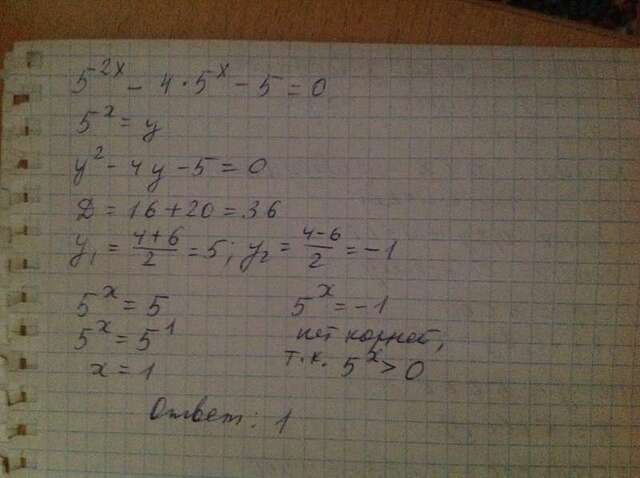 5^{2x} - 4·5^x - 5 = 0
5^x = y
y^2 - 4y - 5 = 0
D = 16 + 20 = 36
y_1 = \frac{4+6}{2} = 5; y_2 = \frac{4-6}{2} = -1
5^x = 5 5^x = -1
5^x = 5^1 нет корней,
x = 1 т.к. 5^x > 0
Ответ: 1